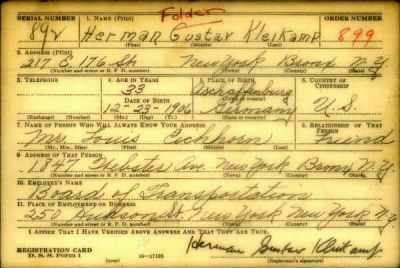 SERIAL NUMBER 1. NAME (Print) Folder ORDER NUMBER
892 Herman Gustav Kleikamp 899
(First) (Middle) (Last)
2. ADDRESS (Print)
217 E. 176 St. New York Bronx N.Y.
(Number and street or R. F. D. number) (Town) (County) (State)
3. TELEPHONE 4. AGE IN YEARS 5. PLACE OF BIRTH 6. COUNTRY OF CITIZENSHIP
33 Aschaffenburg
DATE OF BIRTH (Town or county)
12-23-1906 Germany U.S.
(Exchange) (Number) (Mo.) (Day) (Yr.) (State or country)
7. NAME OF PERSON WHO WILL ALWAYS KNOW YOUR ADDRESS 8. RELATIONSHIP OF THAT PERSON
Mr. Louis Eichhorn Friend
(Mr., Mrs., Miss) (First) (Middle) (Last)
9. ADDRESS OF THAT PERSON
1847 Webster Ave. New York Bronx N.Y.
(Number and street or R. F. D. number) (Town) (County) (State)
10. EMPLOYER'S NAME
Board of Transportation
11. PLACE OF EMPLOYMENT OR BUSINESS
250 Hudson St. New York New York N.Y.
(Number and street or R. F. D. number) (Town) (County) (State)
I AFFIRM THAT I HAVE VERIFIED ABOVE ANSWERS AND THAT THEY ARE TRUE.
REGISTRATION CARD Herman Gustav Kleikamp
D. S. S. FORM 1 (over) 16-17105 (Registrant's signature)